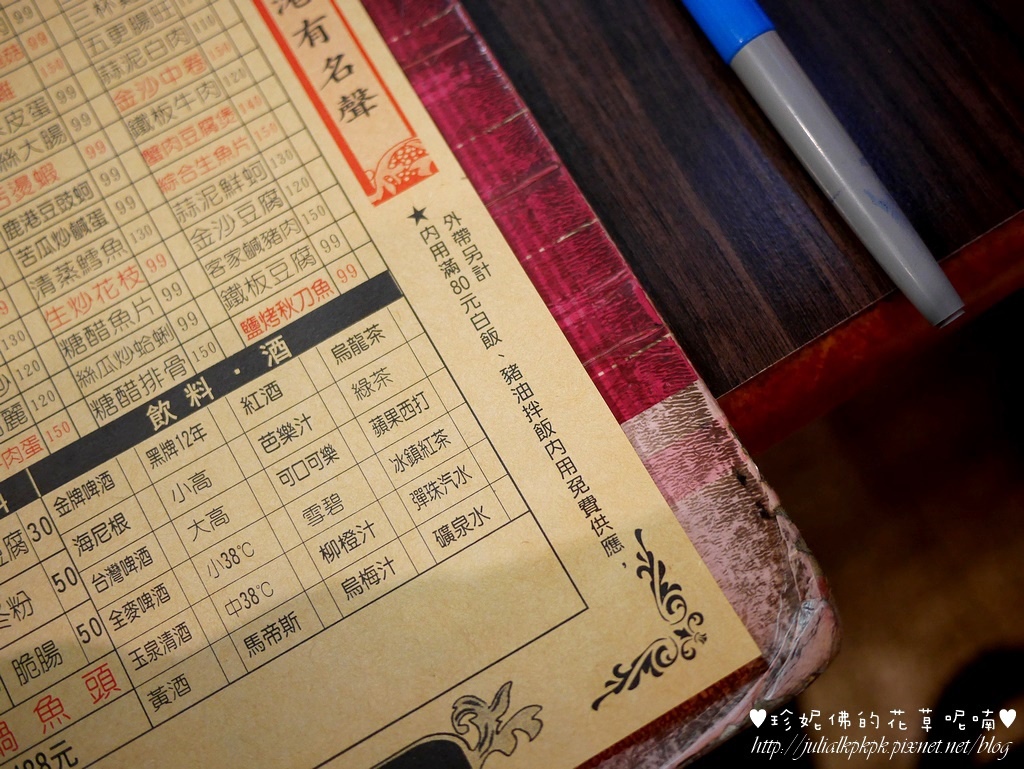 有名聲
三杯
五更腸旺
蒜泥白肉 150
金沙中卷 150
鐵板牛肉 120
蟹肉豆腐煲 140
綜合生魚片 150
蒜泥鮮蚵 130
金沙豆腐 120
客家鹹豬肉 150
鐵板豆腐 99
鹽烤秋刀魚 99
皮蛋 99
絲大腸 99
燙蝦 99
鹿港豆豉蚵 99
苦瓜炒鹹蛋 99
清蒸鱈魚 130
生炒花枝 99
糖醋魚片 99
絲瓜炒蛤蜊 99
糖醋排骨 150
130
120
肉蛋 150
飲料・酒
金牌啤酒
海尼根
台灣啤酒
全麥啤酒
玉泉清酒
黃酒
黑牌12年
小高
大高
小38℃
中38℃
馬帝斯
紅酒
芭樂汁
可口可樂
雪碧
柳橙汁
烏梅汁
烏龍茶
綠茶
蘋果西打
冰鎮紅茶
彈珠汽水
礦泉水
30
粉 50
脆腸 50
鍋魚頭
488元
★外帶另計
內用滿80元白飯、豬油拌飯內用免費供應。
♥珍妮佛的花草呢喃♥
http://julialkpkpk.pixnet.net/blog